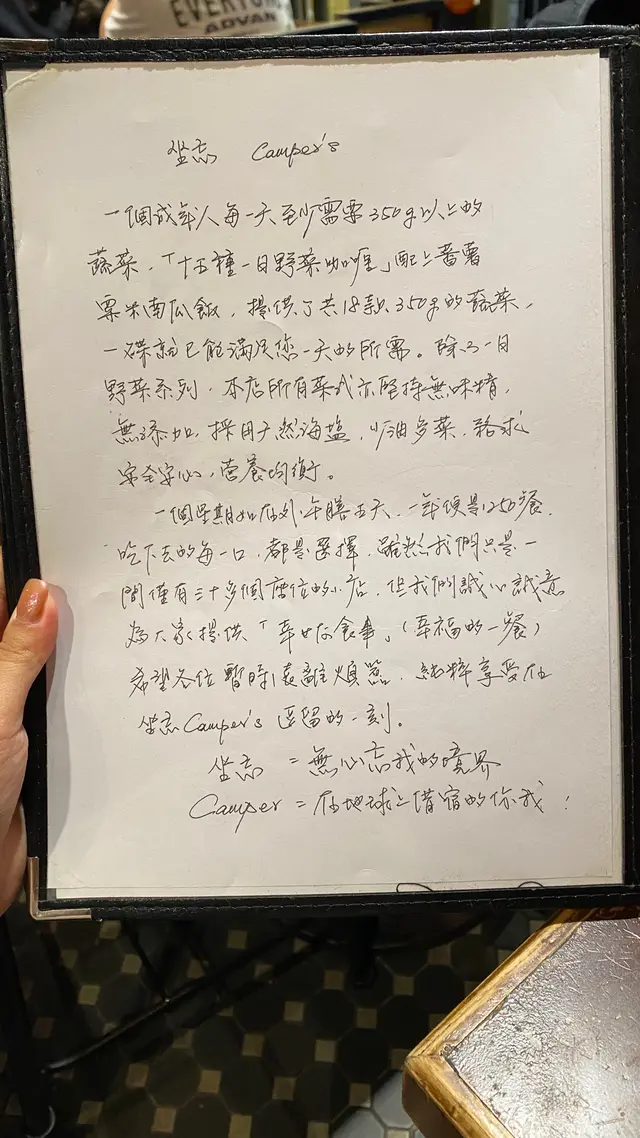 EVERYON
ADVAN
坐忘 Camper's
一個成年人每一天至少需要350g以上的
蔬菜，「十五種一日野菜咖喱」配上蕃薯
粟米南瓜飯，提供了共18款350g的蔬菜，
一碟就已能滿足您一天的所需。除了一日
野菜系列，本店所有菜式亦堅持無味精，
無添加，採用天然海塩，少油多菜，務求
安全安心，營養均衡。
一個星期如在外午膳五天，一年便是250餐，
吃下去的每一口，都是選擇，雖然我們只是一
間僅有三十多個座位的小店，但我們誠心誠意
為大家提供「幸せな食事」（幸福的一餐）
希望各位暫時遠離煩囂，純粹享受在
坐忘Camper's逗留的一刻。
坐忘 = 無心忘我的境界
Camper = 在地球上借宿的你我！